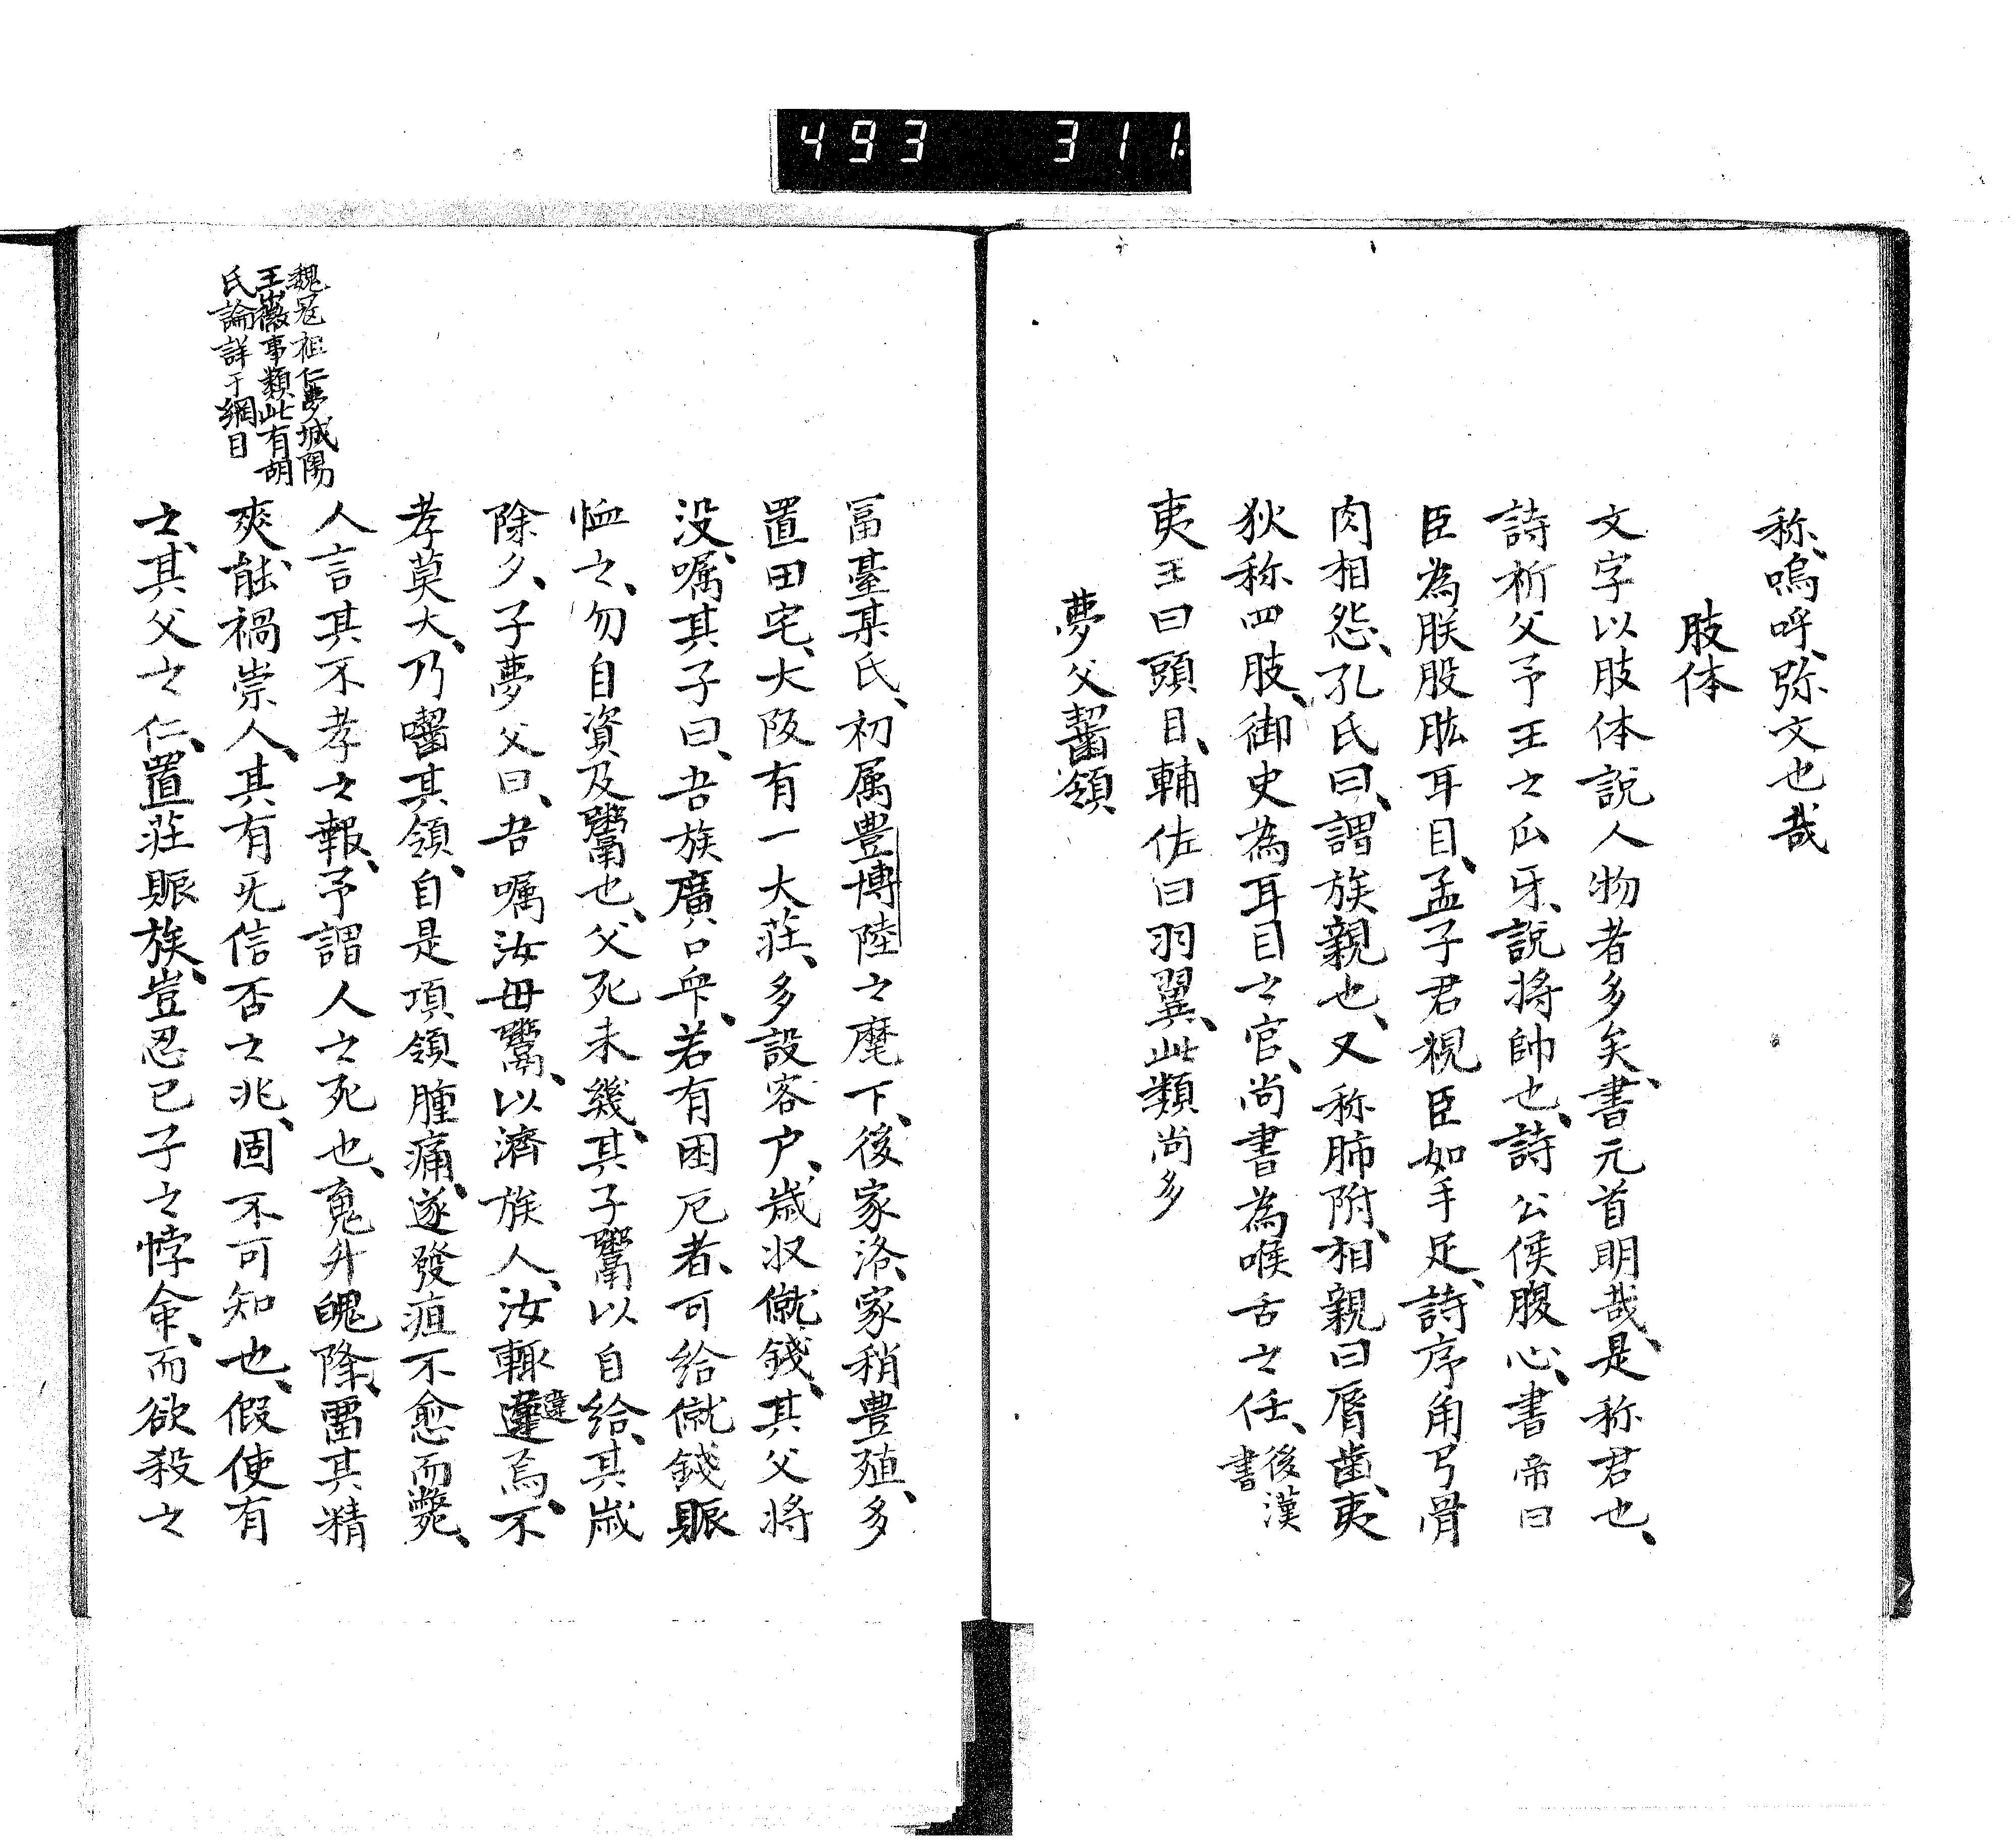 493 311
称、嗚呼、弥文也哉
肢体
文字以肢体說人物者多矣、書元首明哉、是称君也、
詩祈父予王之爪牙、說将帥也、詩公侯腹心、書帝曰
臣為朕股肱耳目、孟子君視臣如手足、詩序角弓骨
肉相怨、孔氏曰、謂族親也、又称肺附、相親曰脣歯、夷
狄称四肢、御史為耳目之官、尚書為喉舌之任、後漢書
夷王曰頭目、輔佐曰羽翼、此類尚多
夢父齧領
冨臺某氏、初属豊博陸之麾下、後家洛、家稍豊殖、多
置田宅、大阪有一大莊、多設客户、歳収僦錢、其父将
没、嘱其子曰、吾族廣口衆、若有困厄者、可給僦錢賑
恤之、勿自資及鬻也、父死未幾、其子鬻以自給、其歳
除夕、子夢父曰、吾嘱汝毋鬻、以濟族人、汝輙違違焉、不
孝莫大、乃囓其領、自是項領腫痛、遂發疽不愈而斃、
人言其不孝之報、予謂人之死也、䰟升魄降、畱其精
爽、能禍祟人、其有旡信否之兆、固不可知也、假使有
之、其父之仁、置莊賑族、豈忍已子之悖命、而欲殺之
魏冦祖仁夢城陽
王徽事類此有胡
氏論詳于綱目